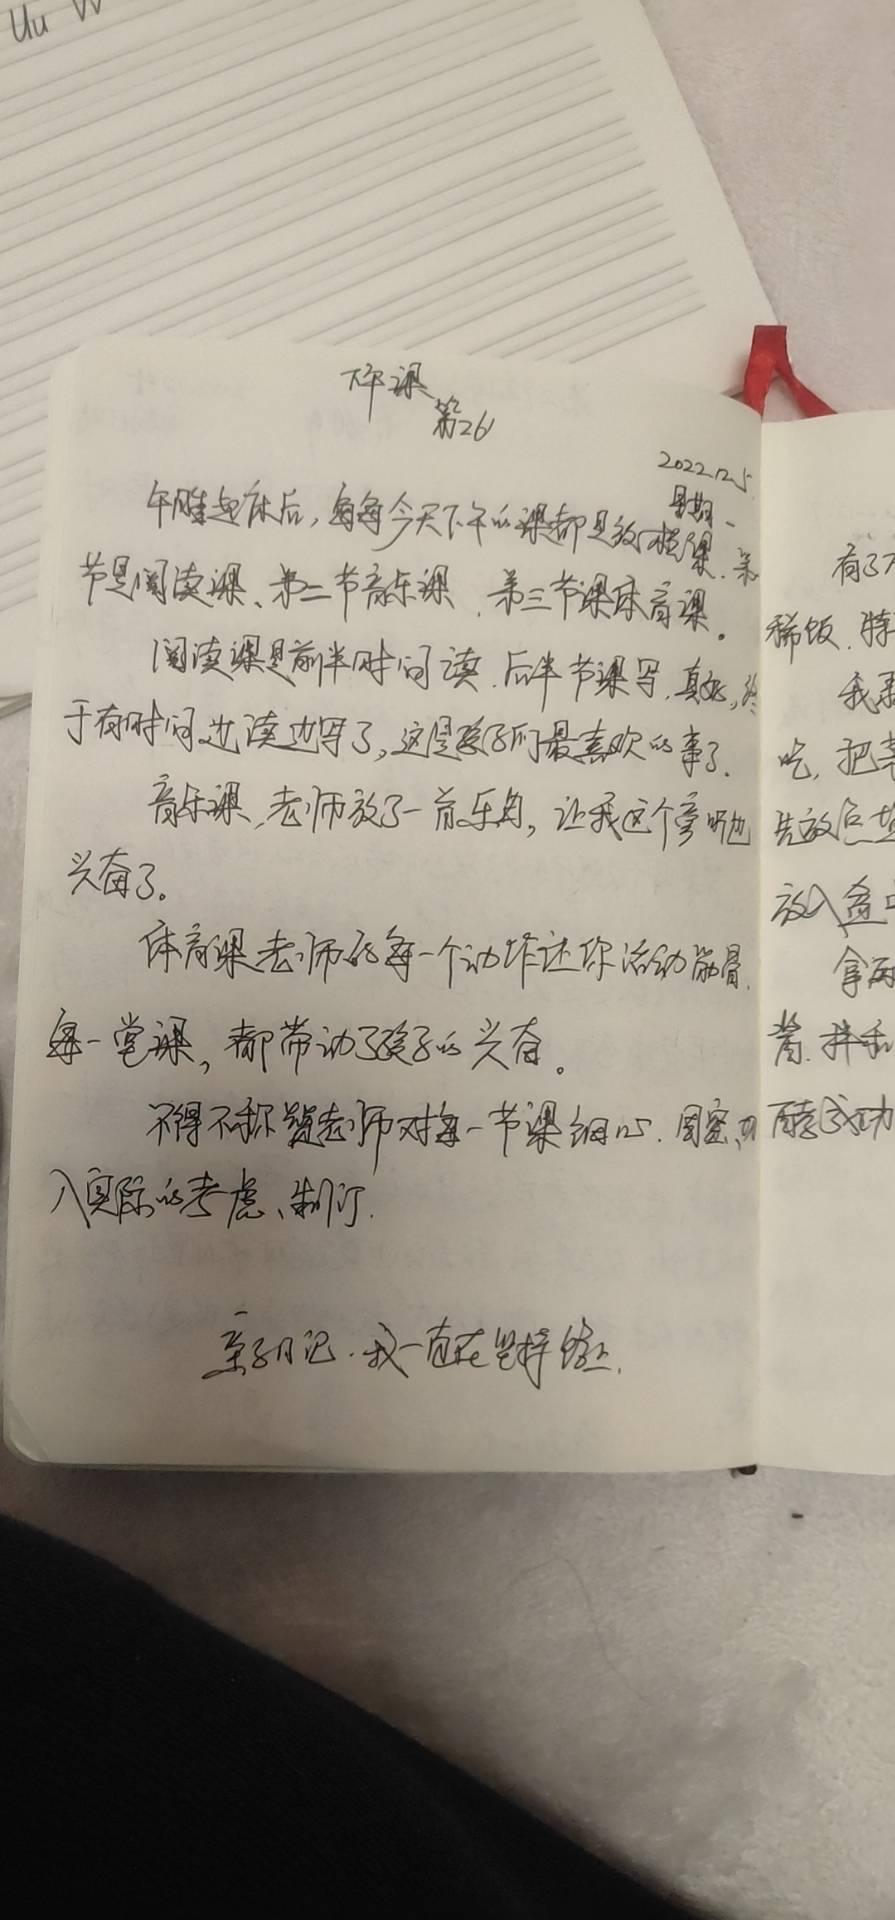 Uu
下午课
第26
2022.12.5.
星期一
午睡起床后，每每今天下午的课都是放松课、第
节是阅读课、第二节音乐课、第三节课体育课。
阅读课是前半时间读、后半节课写，真好，终
于有时间边读边写了，这是孩子们最喜欢的事了.
音乐课，老师放了一首乐曲，让我这个旁听也
兴奋了。
体育课老师的每一个动作让你活动筋骨.
每一堂课，都带动了孩子的兴奋。
不得不称赞老师对每一节课细心、周密、
入实际的考虑、制订.
亲子日记·我一直在坚持
有了
稀饭.
我
吃，把
先放
放入盆
拿两
酱.拌和
酵成功